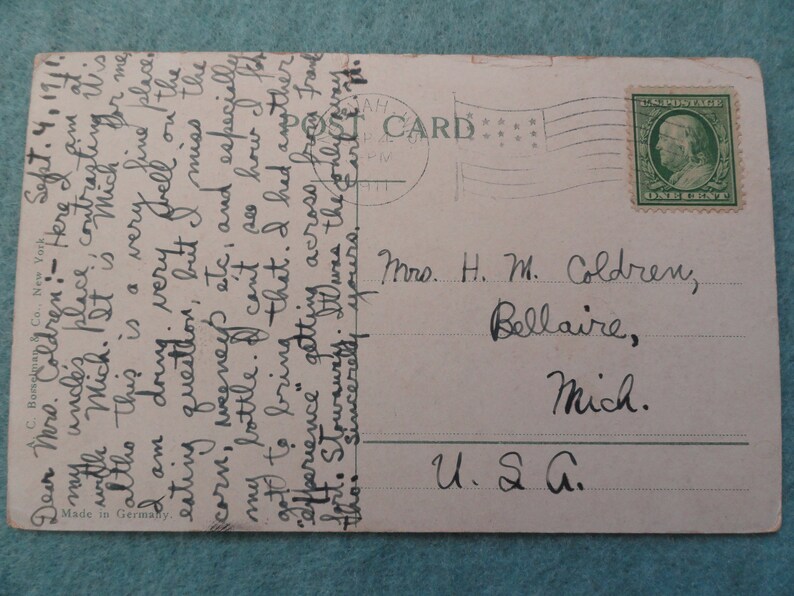 Sept. 4, 1911.
Dear Mrs. Coldren:- Here I am at
my uncle's place, contrasting Wis
with Mich. It is Mich for me
altho this is a very fine place.
I am doing very well on the
eating question, but I miss the
corn, etc, and especially
my bottle. I can't see how I for
got to bring that. I had another
"experience" getting across from Frank
fort. Stowaway. It was the only way
tho. Sincerely yours, Earle
A. C. Bosselman & Co., New York
Made in Germany.
POST CARD
PM
1911
U.S. POSTAGE
ONE CENT
Mrs. H. M. Coldren,
Bellaire,
Mich.
U. S. A.